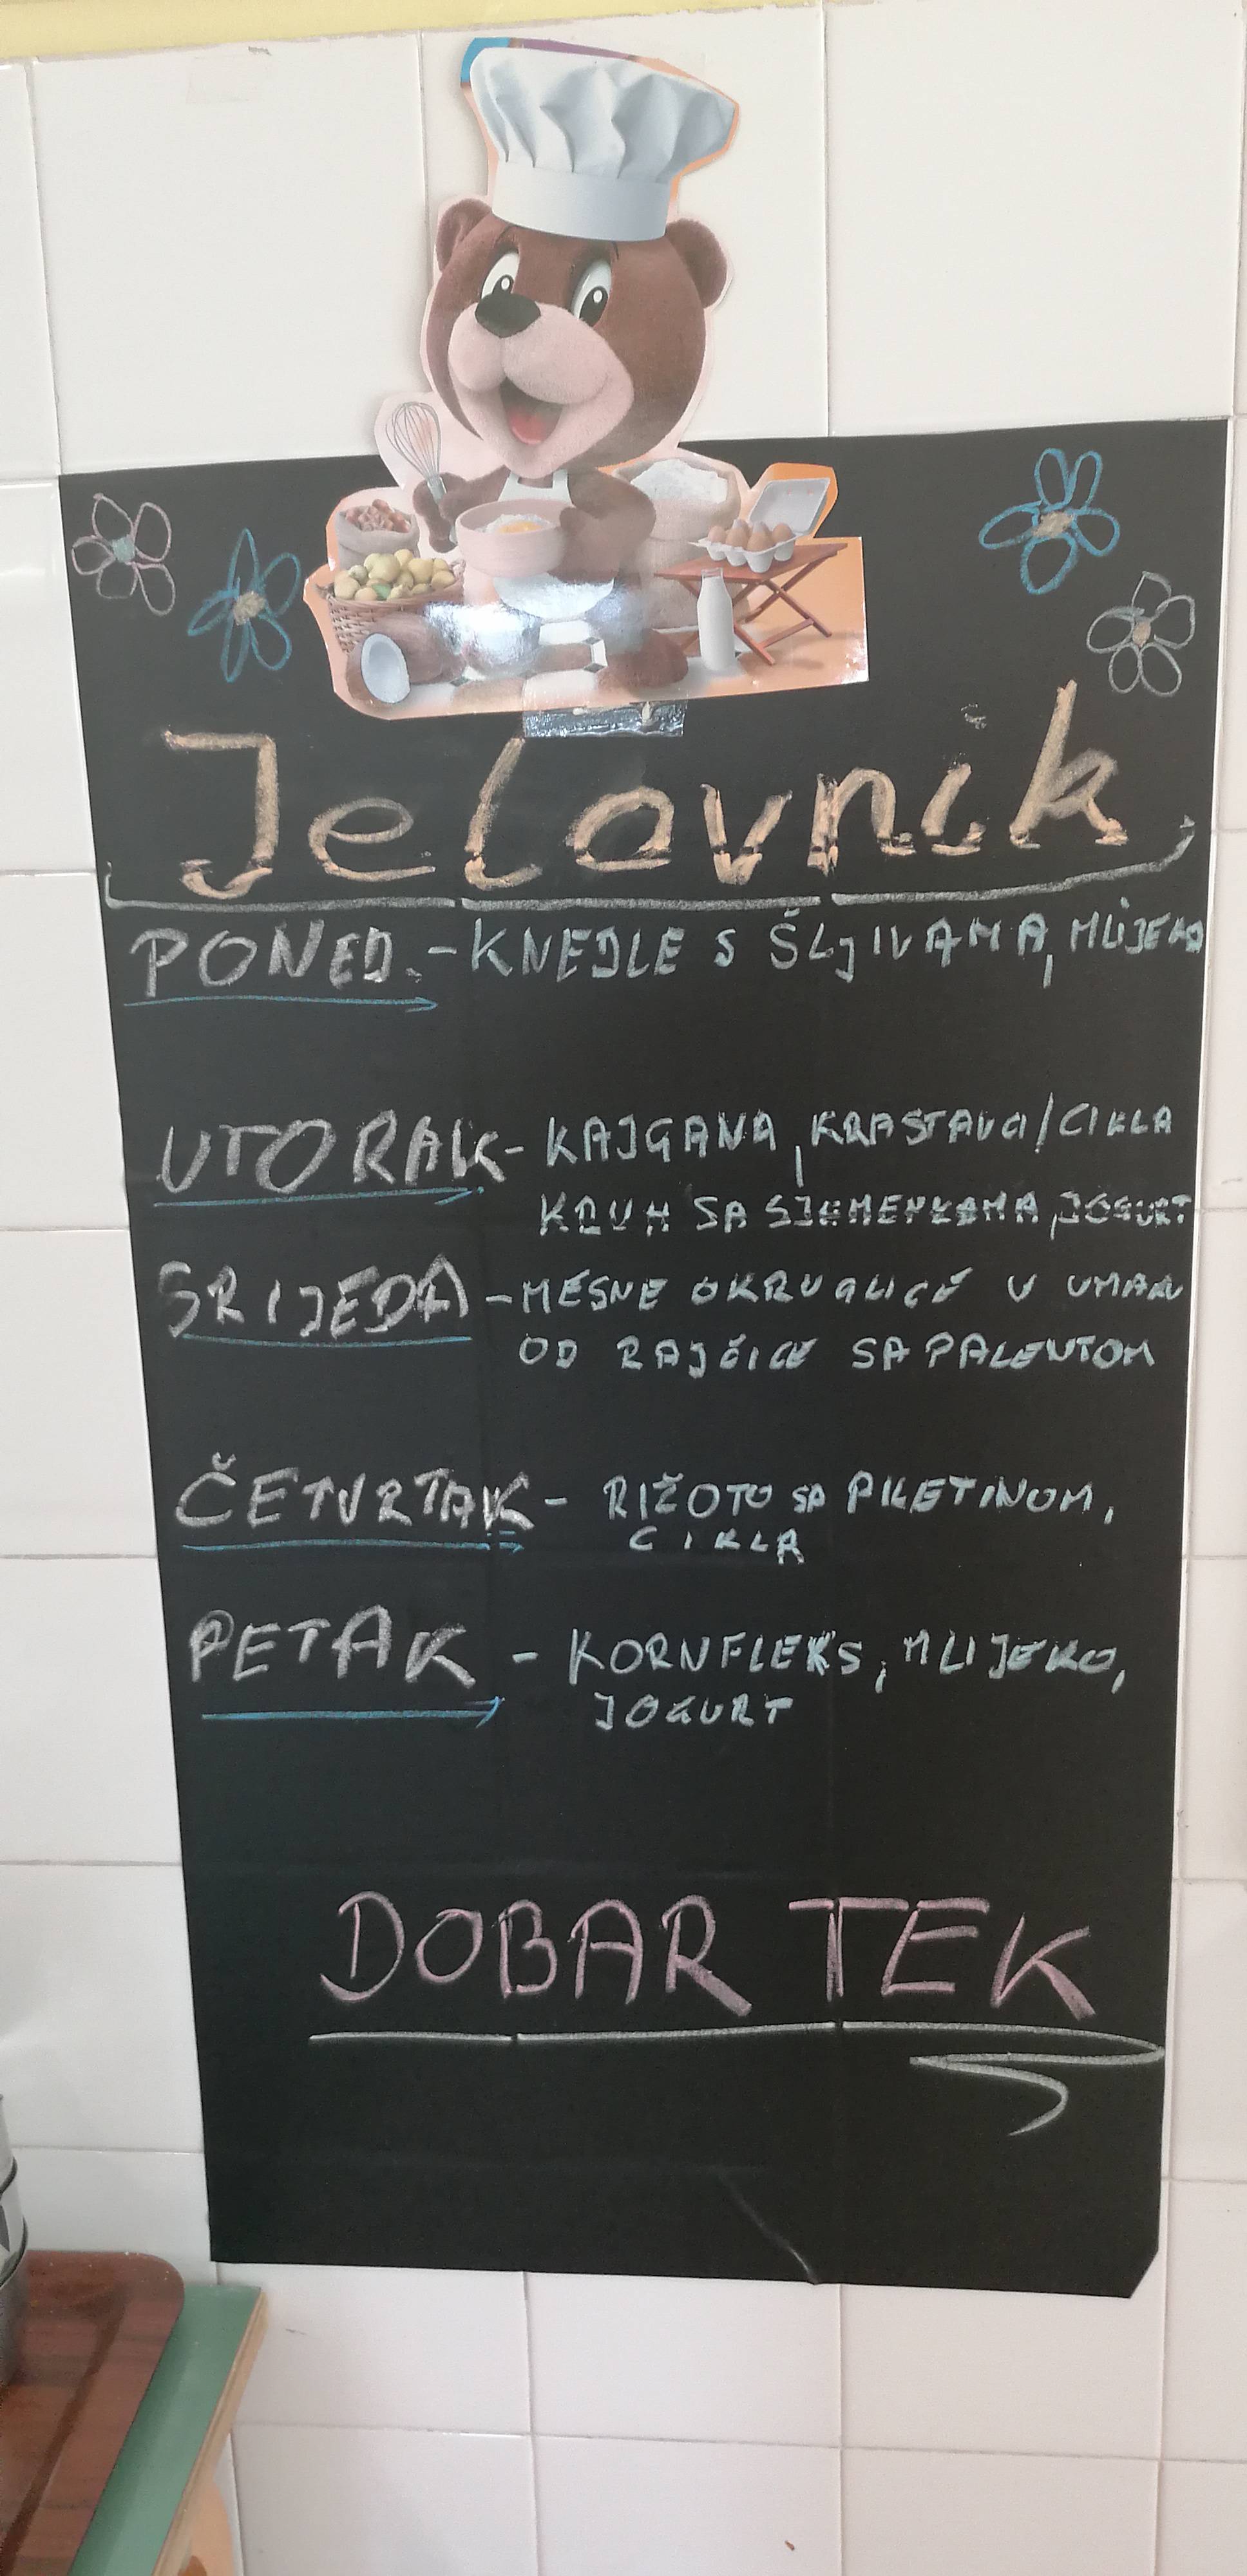 Jelovnik
PONED. - KNEDLE S ŠLJIVAMA, MLIJEKO
UTORAK - KAJGANA, KRASTAVCI/CIKLA
KRUH SA SJEMENKAMA, JOGURT
SRIJEDA - MESNE OKRUGLICE U UMAKU
OD RAJČICE SA PALENTOM
ČETVRTAK - RIŽOTO SA PILETINOM,
CIKLA
PETAK - KORNFLEKS, MLIJEKO,
JOGURT
DOBAR TEK